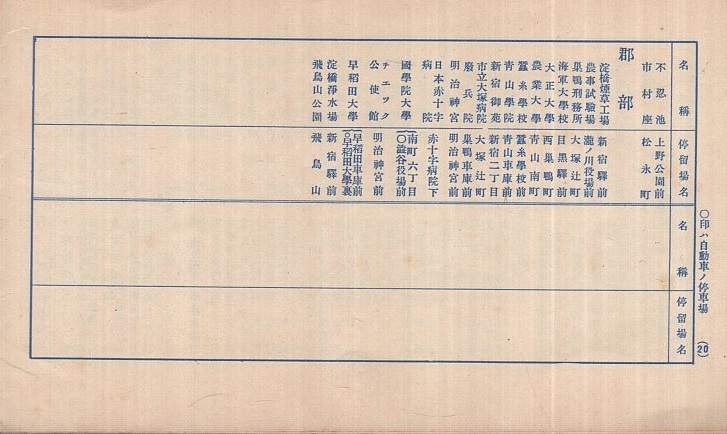 〇印ハ自動車ノ停車場 (20)
名稱 停留場名 名稱 停留場名
不忍池 上野公園前
市村座 松永町
郡部
淀橋煙草工場 新宿驛前
農事試驗場 瀧ノ川役場前
巢鴨刑務所 大塚辻町
海軍大學校 目黑驛前
大正大學 西巢鴨町
農業大學 青山南町
蠶糸學校 蠶糸學校前
青山學院 青山車庫前
新宿御苑 新宿二丁目
市立大塚病院 大塚辻町
廢兵院 巢鴨車庫前
明治神宮 明治神宮前
日本赤十字病院 赤十字病院下
國學院大學 南町六丁目
〇澁谷役場前
チエツク公使館 明治神宮前
早稻田大學 早稻田車庫前
〇早稻田大學裏
淀橋淨水場 新宿驛前
飛鳥山公園 飛鳥山